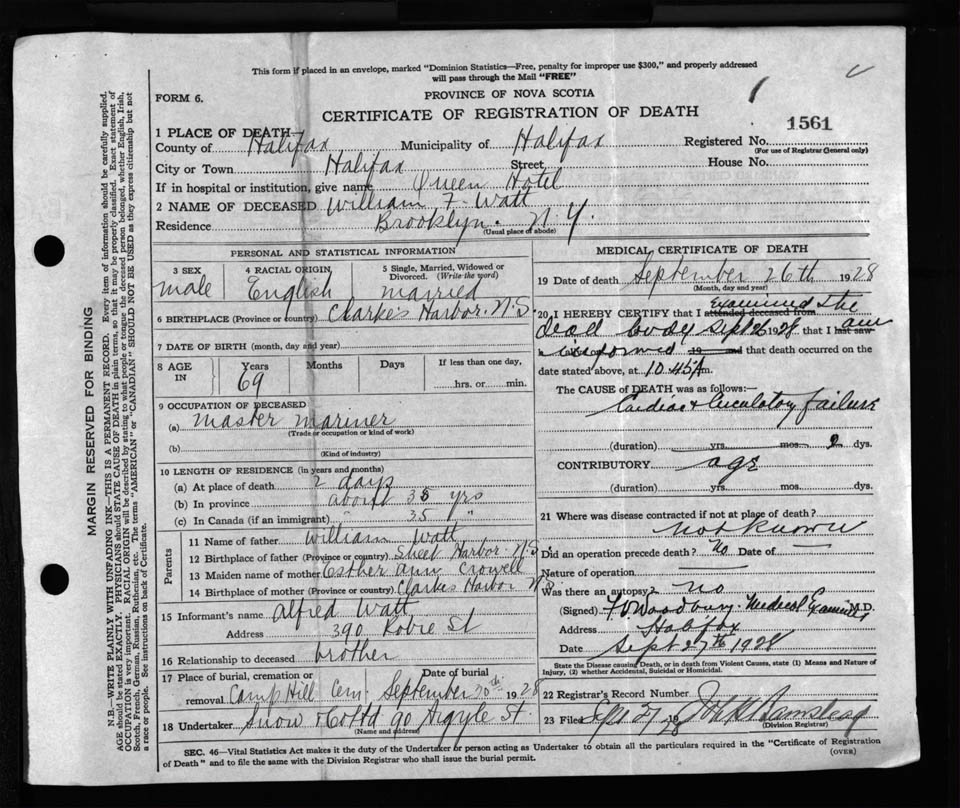 This form if placed in an envelope, marked "Dominion Statistics—Free, penalty for improper use $300," and properly addressed
will pass through the Mail "FREE"
FORM 6.
PROVINCE OF NOVA SCOTIA
CERTIFICATE OF REGISTRATION OF DEATH
1561
1 PLACE OF DEATH—
County of Halifax Municipality of Halifax Registered No.
(For use of Registrar General only)
City or Town Halifax Street House No.
If in hospital or institution, give name Queen Hotel
2 NAME OF DECEASED William F. Watt
Residence Brooklyn. N.Y.
(Usual place of abode)
PERSONAL AND STATISTICAL INFORMATION
3 SEX
male
4 RACIAL ORIGIN
English
5 Single, Married, Widowed or
Divorced. (Write the word)
married
6 BIRTHPLACE (Province or country) Clarke's Harbor. N.S
7 DATE OF BIRTH (month, day and year)
8 AGE
IN
Years
69
Months
Days
If less than one day,
hrs. or min.
9 OCCUPATION OF DECEASED
(a) Master mariner
(Trade or occupation or kind of work)
(b)
(Kind of industry)
10 LENGTH OF RESIDENCE (in years and months)
(a) At place of death 2 days
(b) In province about 35 yrs
(c) In Canada (if an immigrant) 35 "
Parents
11 Name of father William Watt
12 Birthplace of father (Province or country) Sheet Harbor. N.S
13 Maiden name of mother Esther Ann Crowell
14 Birthplace of mother (Province or country) Clarkes Harbor N.S
15 Informant's name Alfred Watt
Address 390 Robie St
16 Relationship to deceased brother
17 Place of burial, cremation or Date of burial
removal Camp Hill Cem. September 1928
18 Undertaker Snow & Co Ltd 90 Argyle St.
(Name and address)
MEDICAL CERTIFICATE OF DEATH
19 Date of death September 26th 1928
(Month, day and year)
20 I HEREBY CERTIFY that I attended deceased from examined the
dead body Sept 26 1928, that I last saw am
informed 19 and that death occurred on the
date stated above, at 10.45 A m.
The CAUSE of DEATH was as follows:
Cardiac & Circulatory failure
(duration) yrs. mos. 2 dys.
CONTRIBUTORY age
(duration) yrs. mos. dys.
21 Where was disease contracted if not at place of death?
not known
Did an operation precede death? No Date of —
Nature of operation —
Was there an autopsy? no
(Signed) F.V. Woodbury. Medical Examiner M.D.
Address Halifax
Date Sept 27th 1928
State the Disease causing Death, or in death from Violent Causes, state (1) Means and Nature of
Injury, (2) whether Accidental, Suicidal or Homicidal.
22 Registrar's Record Number
23 Filed Sept 27 28
(Division Registrar)
SEC. 46—Vital Statistics Act makes it the duty of the Undertaker or person acting as Undertaker to obtain all the particulars required in the "Certificate of Registration
of Death" and to file the same with the Division Registrar who shall issue the burial permit.
(OVER)
MARGIN RESERVED FOR BINDING
N.B.—WRITE PLAINLY WITH UNFADING INK—THIS IS A PERMANENT RECORD. Every item of information should be carefully supplied.
AGE should be stated EXACTLY. PHYSICIANS should STATE CAUSE OF DEATH in plain terms, so that it may be properly classified. Exact statement of
OCCUPATION is very important. RACIAL ORIGIN will be described by stating to what people or tongue the deceased person belonged, whether English, Irish,
Scotch, French, German, Russian, Ruthenian, etc. The terms "AMERICAN" or "CANADIAN" SHOULD NOT BE USED as they express citizenship but not
a race or people. See instructions on back of Certificate.